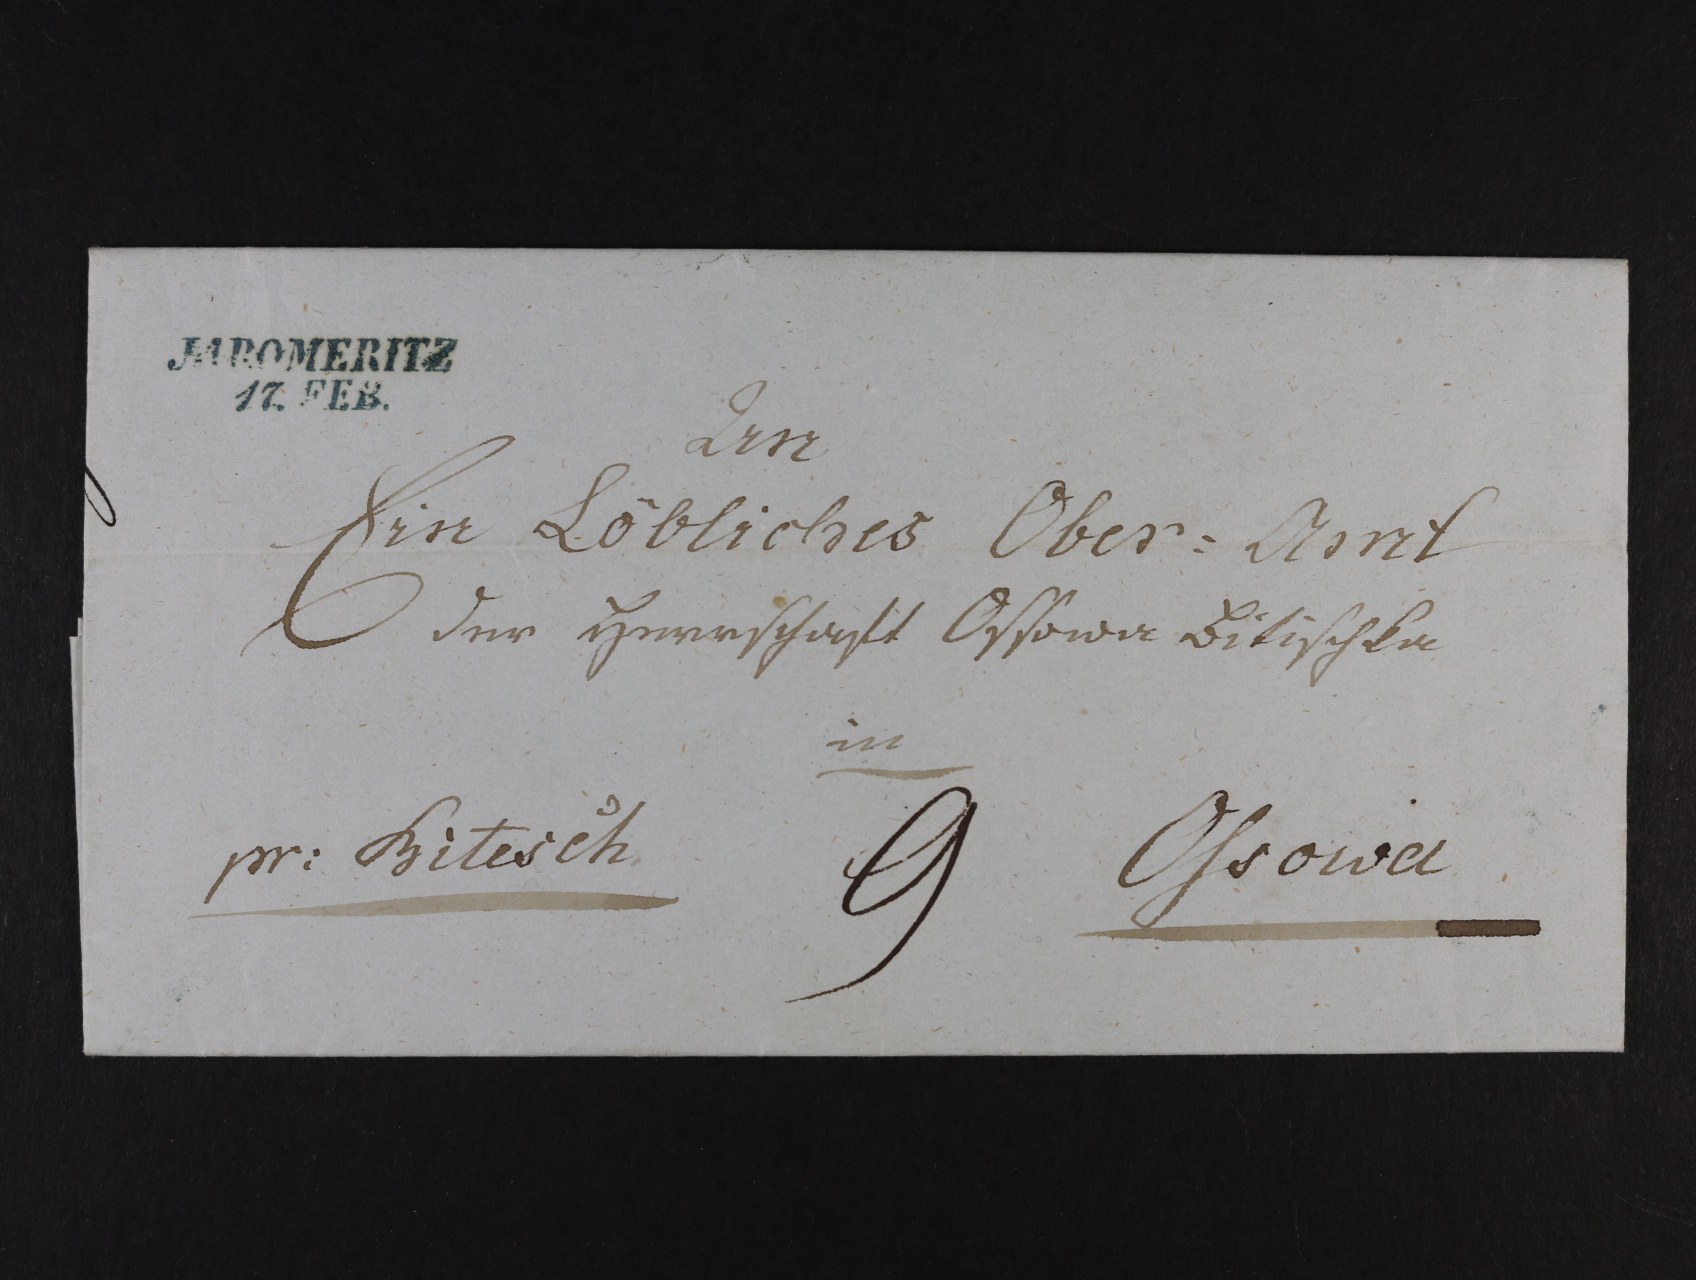 JAROMERITZ
17. FEB.
An
Ein Löbliches Ober: Amt
der Herrschaft Ossowa Bitischka
in
pr: Bitesch
9
Ossowa